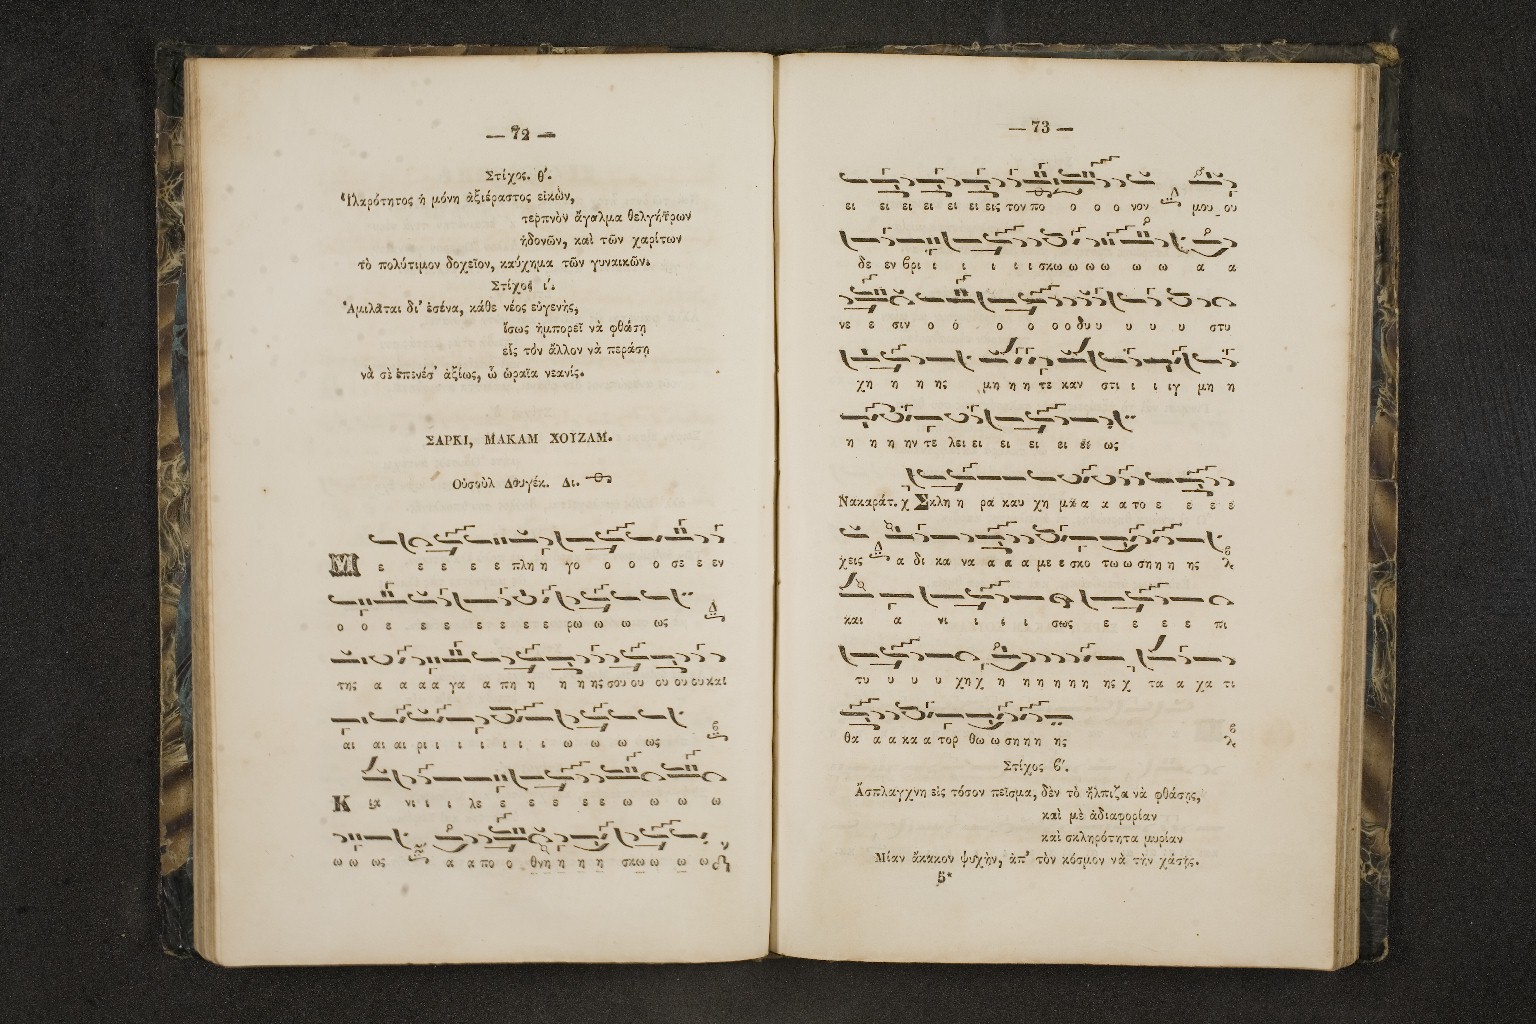 — 72 —
Στίχος. θʹ.
Ἱλαρότητος ἡ μόνη ἀξιέραστος εἰκὼν,
τερπνὸν ἄγαλμα θελγήτρων
ἡδονῶν, καὶ τῶν χαρίτων
τὸ πολύτιμον δοχεῖον, καύχημα τῶν γυναικῶν.
Στίχος ιʹ.
Ἁμιλᾶται δι' ἐσένα, κάθε νέος εὐγενὴς,
ἴσως ἠμπορεῖ νὰ φθάσῃ
εἰς τὸν ἄλλον νὰ περάσῃ
νὰ σὲ ἐπενέσ' ἀξίως, ὦ ὡραῖα νεανίς.
ΣΑΡΚΙ, ΜΑΚΑΜ ΧΟΥΖΑΜ.
Οὐσοὺλ Δουγέκ. Δι.
Μ ε ε ε ε ε πλη η γο ο ο ο σε ε εν
ο ο ε ε ε ε ε ε ε ρω ω ω ω ως
της α α α α γα α πη η η η ης σου ου ου ου ου και
αι αι αι ρι ι ι ι ι ι ι ω ω ω ω ως
Κ ια νι ι ι ι λε ε ε ε ε ε ω ω ω ω
ω ω ως α α πο ο θνη η η η σκω ω ω ω
— 73 —
ει ει ει ει ει ει εις τον πο ο ο ο νον μου ου
δε εν βρι ι ι ι ι ι σκω ω ω ω ω ω α α
νε ε σιν ο ο ο ο ο ο δυ υ υ υ υ στυ
χη η η ης μη η η τε καν στι ι ι ιγ μη η
η η η ην τε λει ει ει ει ει ει ως
Νακαράτ. χ Σκλη η ρα καυ χη μα α α α το ε ε ε ε
χεις α δι κα να α α α με ε σκο τω ω ση η η ης
και α νι ι ι ι σως ε ε ε ε πι
τυ υ υ υ χη χ η η η η η η ης χ τα α χα τι
θα α α κα α τορ θω ω ση η η ης
Στίχος βʹ.
Ἄσπλαγχνη εἰς τόσον πεῖσμα, δὲν τὸ ἤλπιζα νὰ φθάσῃς,
καὶ μὲ ἀδιαφορίαν
καὶ σκληρότητα μυρίαν
Μίαν ἄκακον ψυχὴν, ἀπ' τὸν κόσμον νὰ τὴν χάσῃς.
5*